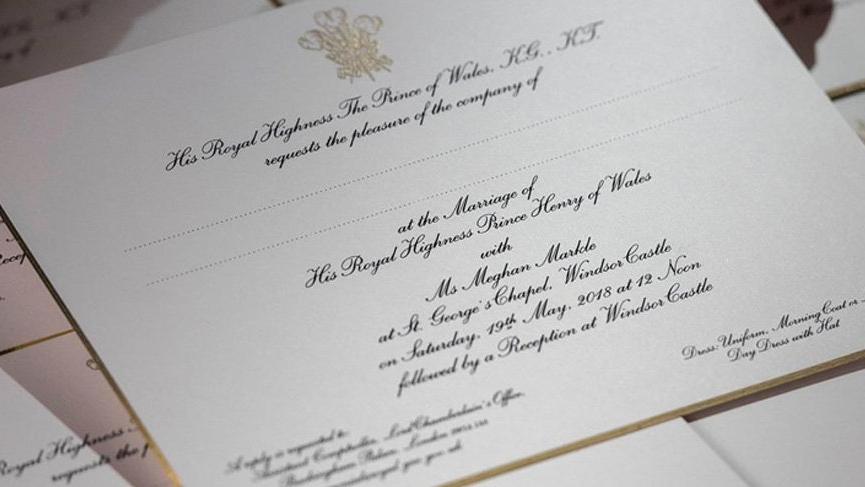 His Royal Highness The Prince of Wales, K.G., K.T.
requests the pleasure of the company of
at the Marriage of
His Royal Highness Prince Henry of Wales
with
Ms Meghan Markle
at St. George's Chapel, Windsor Castle
on Saturday, 19th May, 2018 at 12 Noon
followed by a Reception at Windsor Castle
Dress: Uniform, Morning Coat or
Day Dress with Hat
A reply is requested to:
Assistant Comptroller, Lord Chamberlain's Office,
Buckingham Palace, London
Royal Highness
requests the p